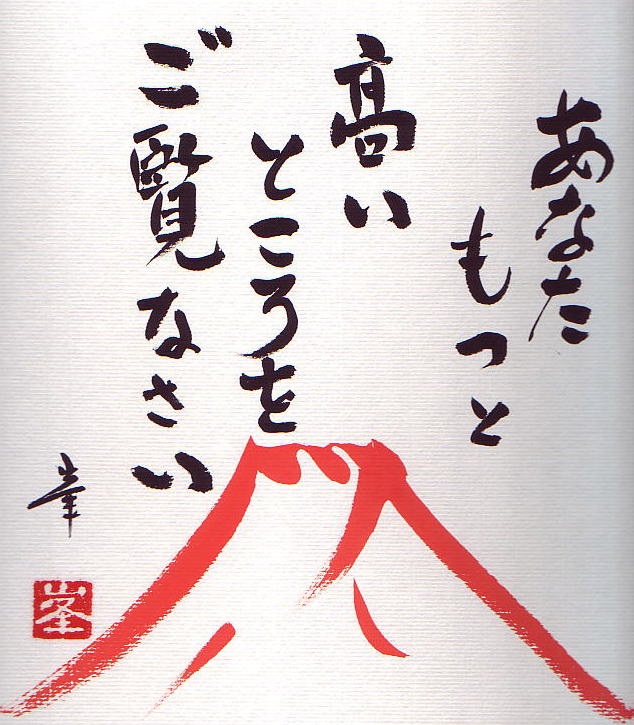 あなた
もっと
高い
ところを
ご覧なさい
峯
峯